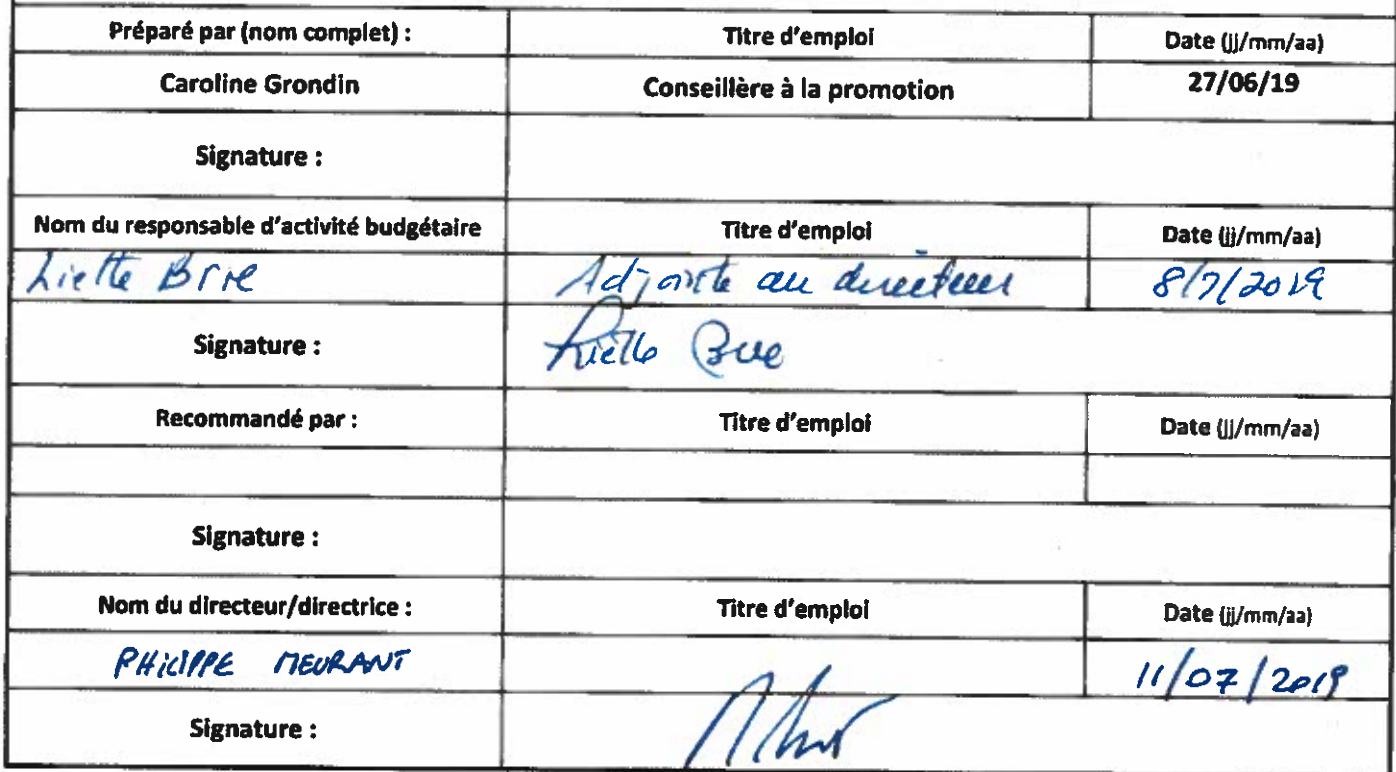 Préparé par (nom complet) : Titre d'emploi Date (jj/mm/aa)
Caroline Grondin Conseillère à la promotion 27/06/19
Signature :
Nom du responsable d'activité budgétaire Titre d'emploi Date (jj/mm/aa)
Liette Brie Adjointe au directeur 8/7/2019
Signature : Liette Brie
Recommandé par : Titre d'emploi Date (jj/mm/aa)
Signature :
Nom du directeur/directrice : Titre d'emploi Date (jj/mm/aa)
PHILIPPE MEURANT 11/07/2019
Signature :